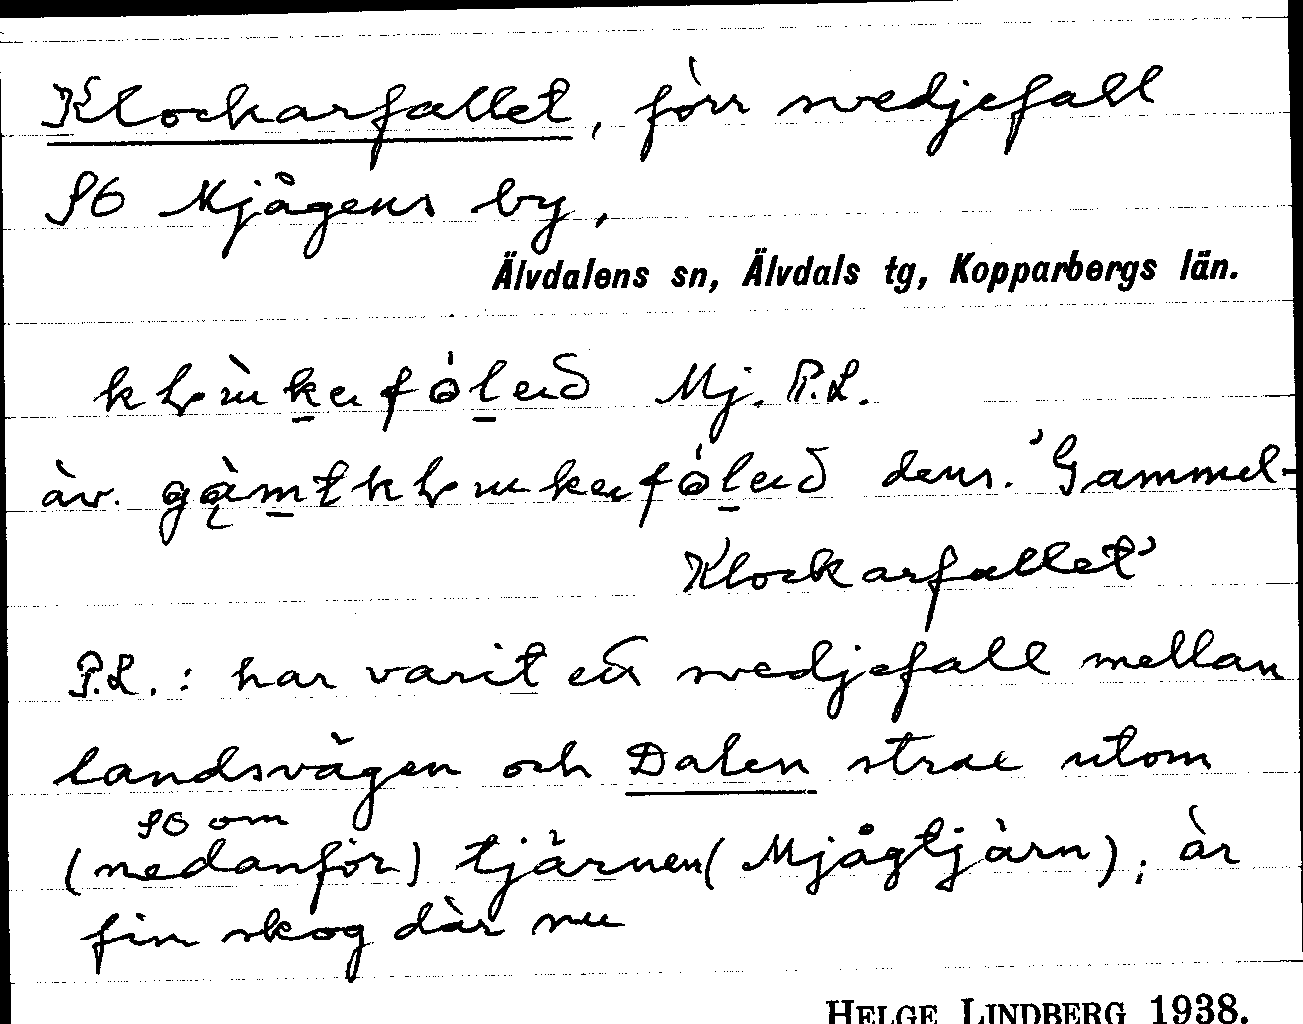 Klockarfallet, förr svedjefall
SO Mjågens by,
Älvdalens sn, Älvdals tg, Kopparbergs län.
Mj. P.L.
äv. dens. 'Gammel-
Klockarfallet'
P.L.: har varit ett svedjefall mellan
landsvägen och Dalen strax utom
SO om
(nedanför) tjärnen (Mjågtjärn); är
fin skog där nu
HELGE LINDBERG 1938.